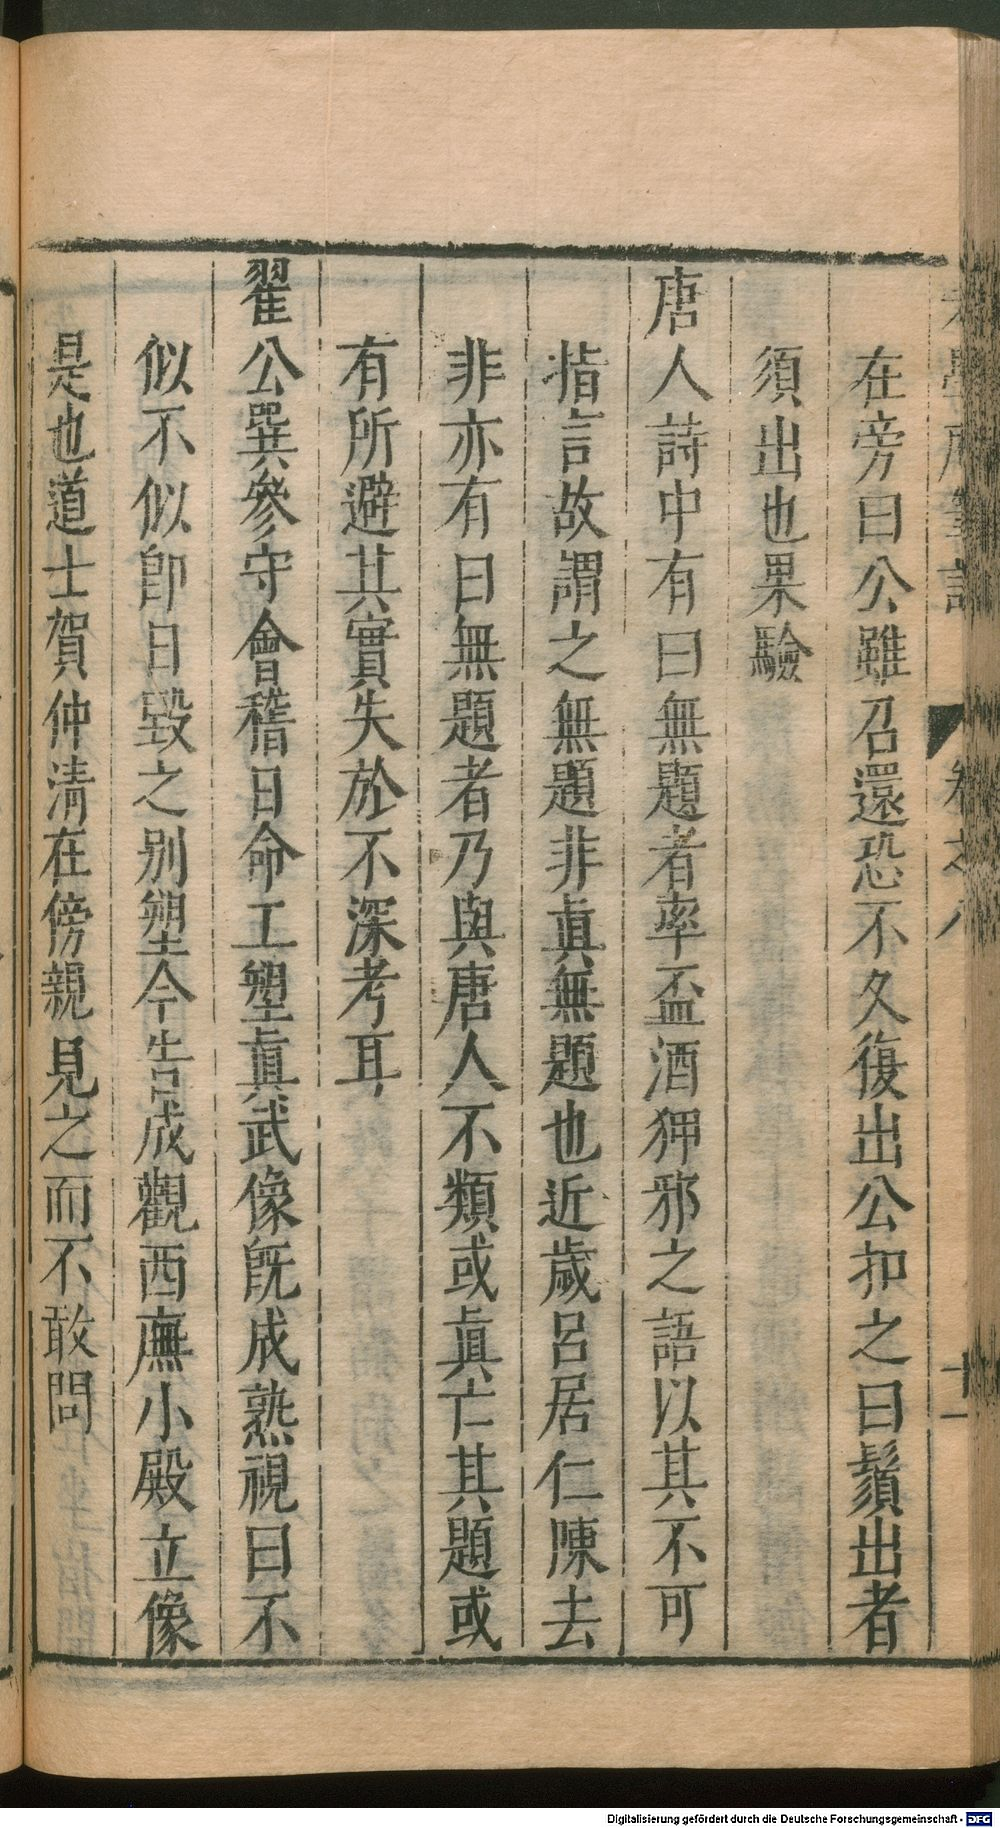 在旁曰公雖召還恐不久復出公扣之曰鬚出者
須出也果驗
唐人詩中有曰無題者率盃酒狎邪之語以其不可
指言故謂之無題非眞無題也近歲呂居仁陳去
非亦有曰無題者乃與唐人不類或眞亡其題或
有所避其實失於不深考耳
翟公巽參守會稽日命工塑眞武像旣成熟視曰不
似不似卽日毀之別塑今告成觀西廡小殿立像
是也道士賀仲淸在傍親見之而不敢問
卷之八
十一
Digitalisierung gefördert durch die Deutsche Forschungsgemeinschaft - DFG